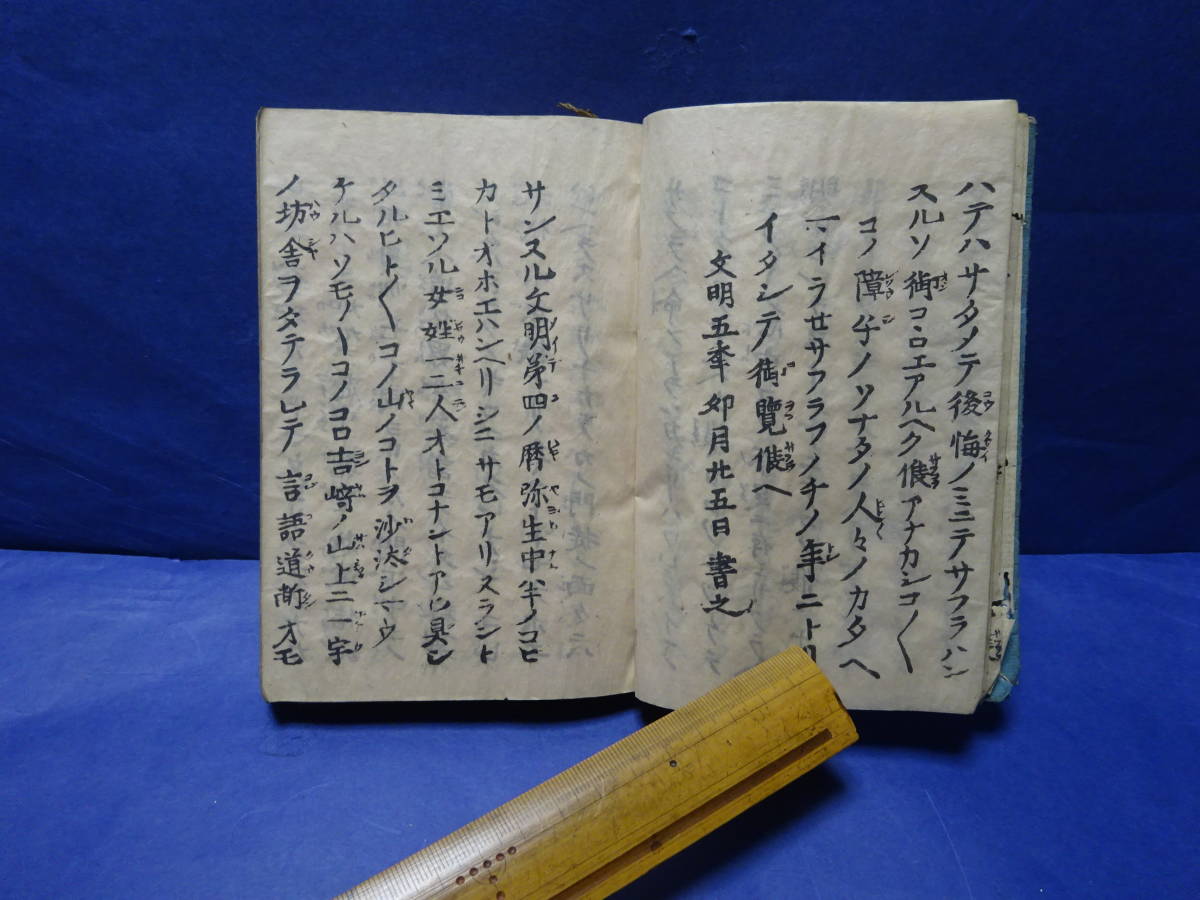 ハテハサタメテ後悔ノミニテサフラハン
スルソ御コヽロエアルヘク候アナカシコ〱
コノ障子ノソナタノ人々ノカタヘ
マイラセサフラフノチノ年ニトリ
イタシテ御覧候ヘ
文明五年如月廿五日書之
サンヌル文明第四ノ暦弥生中半ノコロ
カトオホエハンヘリシニサモアリヌラント
ミエツル女姓一二人オトコナントアヒ具シ
タルヒト〱コノ山ノコトヲ沙汰シマウシ
ケルハソモ〱コノコロ吉崎ノ山上ニ一宇
ノ坊舎ヲタテラレテ言語道断オモ